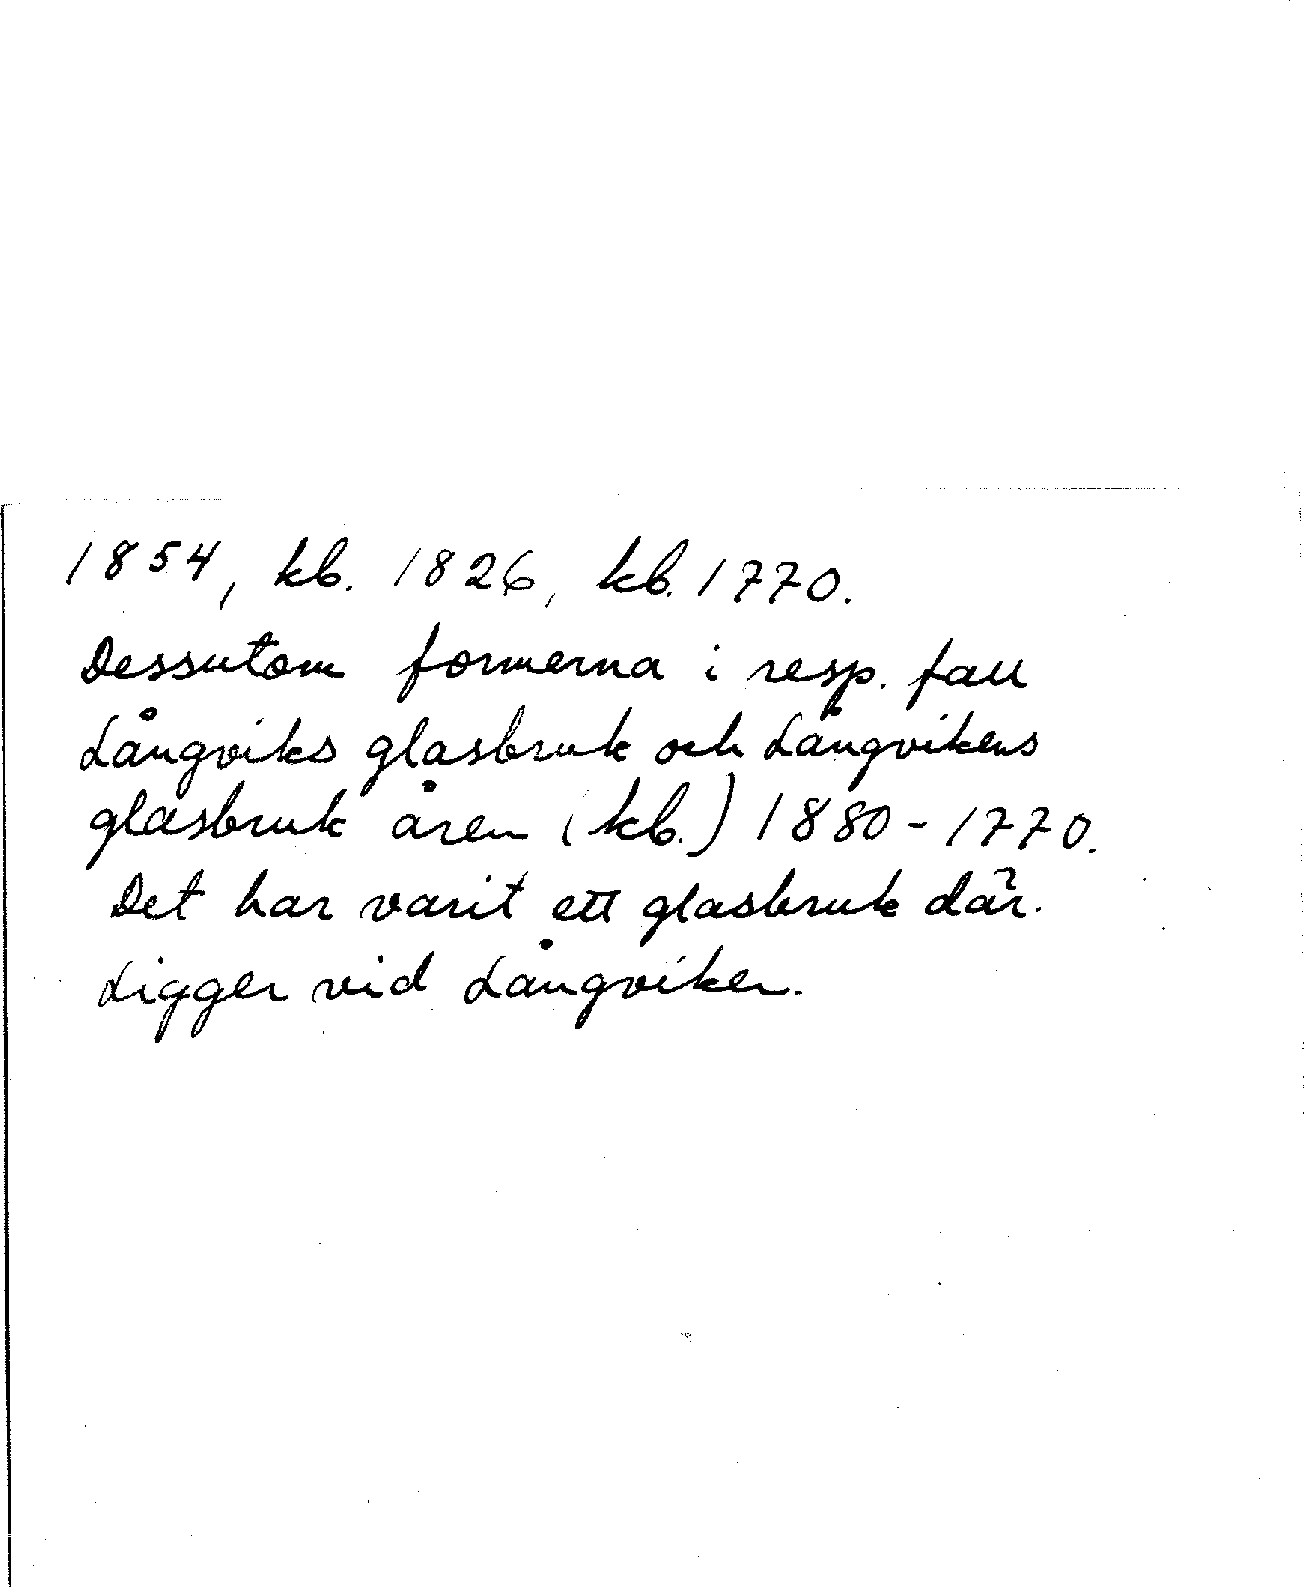 1854, kb. 1826, kb. 1770.
Dessutom formerna i resp. fall
Långviks glasbruk och Långvikens
glasbruk åren (kb.) 1880-1770.
Det har varit ett glasbruk där.
Ligger vid Långviken.